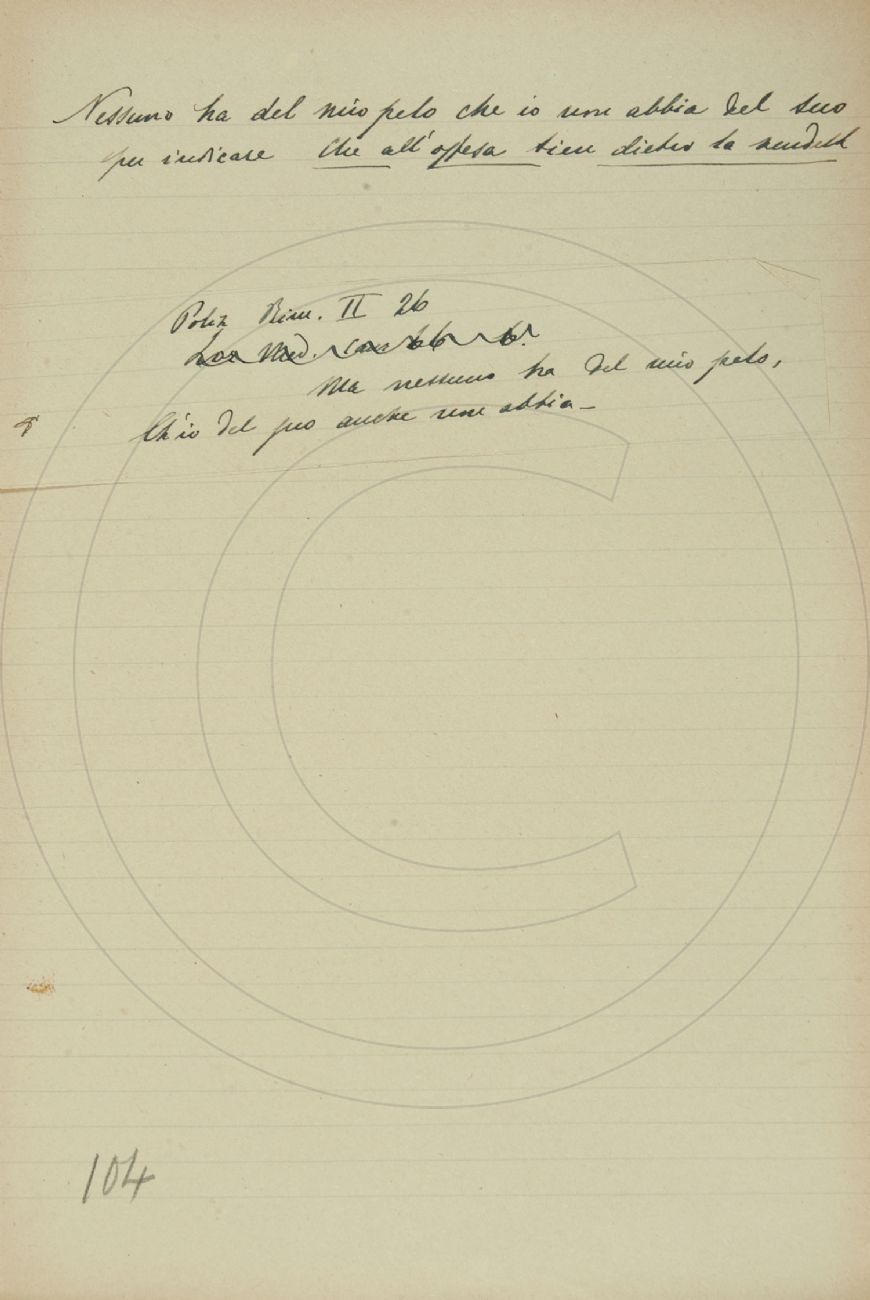 Nessuno ha del mio pelo che io non abbia del suo
per indicare che all'offesa tien dietro la vendetta
Poliz Rim. II 26
Lor Med. Canz 66 6.
Ma nessuno ha del mio pelo,
Ch'io del suo anche non abbia –
104